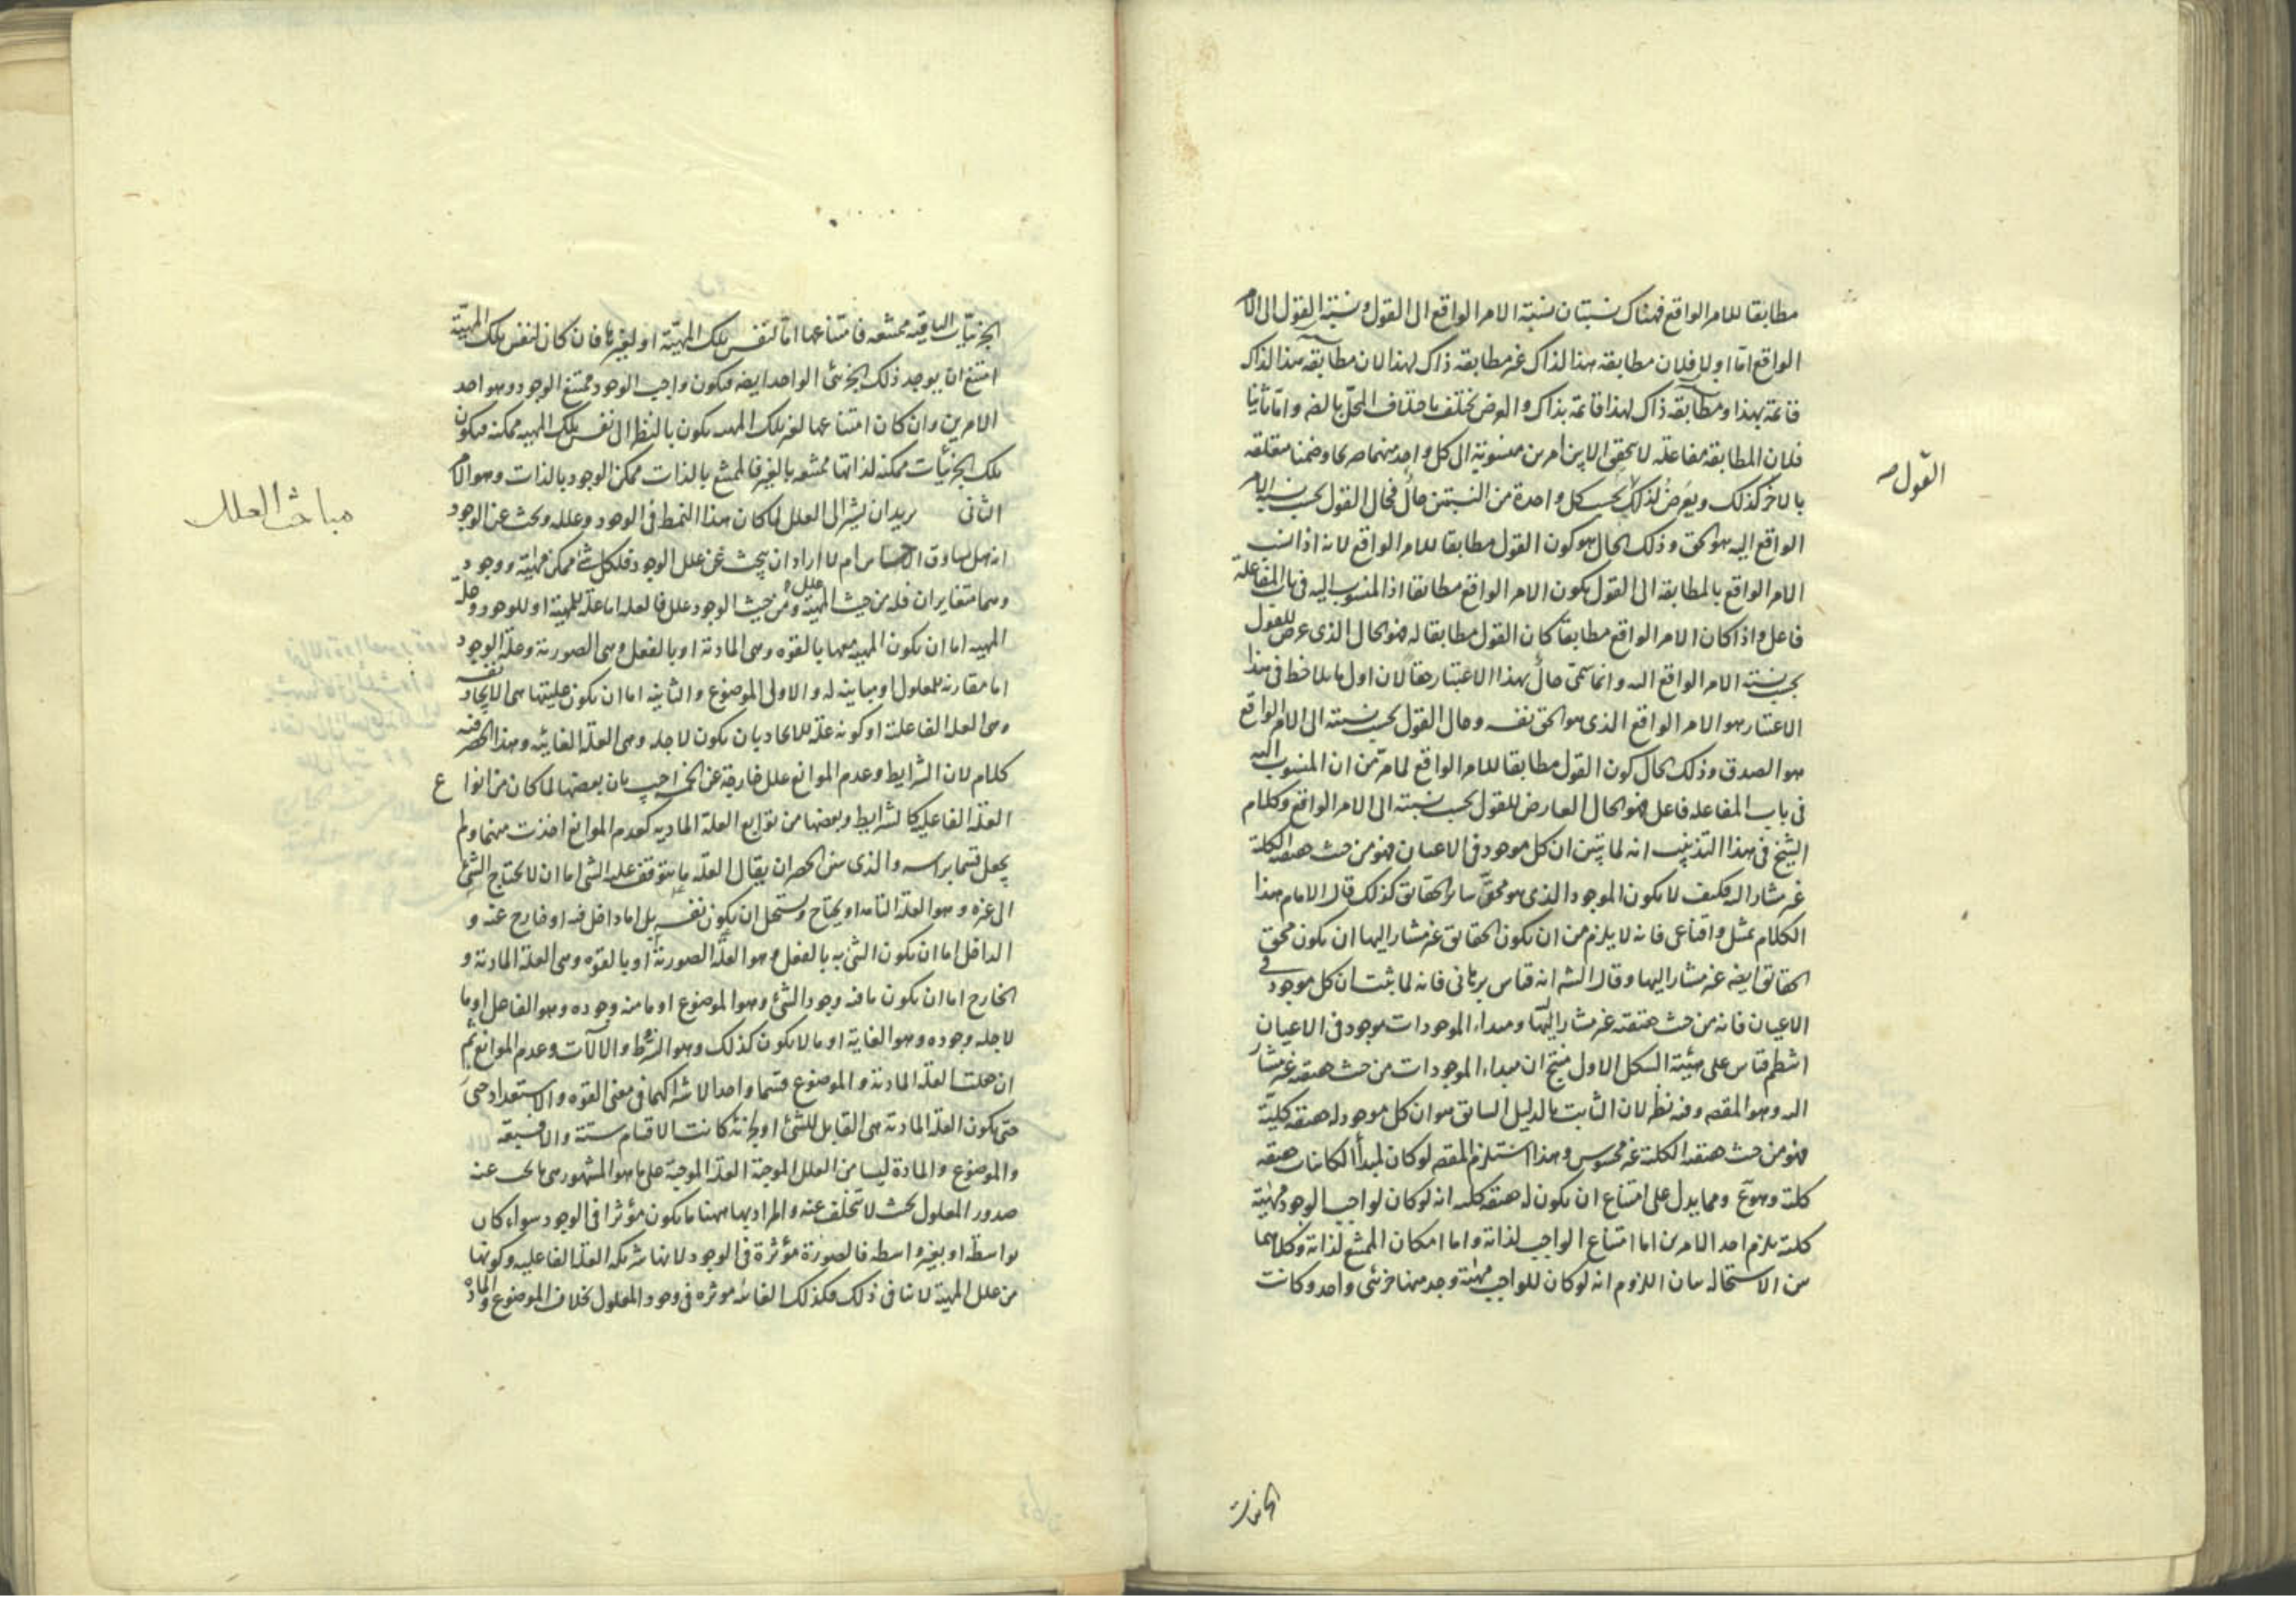 مطابقا للامر الواقع فهناك نسبتان نسبة الامر الواقع الى القول ونسبة القول الى الامر
الواقع اما اولا فلان مطابقة هذا لذاك غير مطابقة ذاك لهذا لان مطابقة هذا لذاك
قائمة بهذا ومطابقة ذاك لهذا قائمة بذاك والعرض يختلف باختلاف المحل بالضر واما ثانيا
فلان المطابقة مفاعلة لا يتحقق الا بين امرين منسوبة الى كل واحد منهما صريحا وضمنا متعلقه
القول
بالاخر كذلك ويعرض لذلك بحسب كل واحدة من النسبتين حال فحال القول بحسب نسبة الامر
الواقع اليه هو الحق وذلك الحال هو كون القول مطابقا للامر الواقع لانه اذا نسب
الامر الواقع بالمطابقة الى القول يكون الامر الواقع مطابقا اذ المنسوب اليه في باب المفاعلة
فاعل واذا كان الامر الواقع مطابقا كان القول مطابقا له فهو الحال الذى عرض للقول
بحسب نسبة الامر الواقع اليه وانما سمى حال بهذا الاعتبار حقا لان اول ما يلاحظ في هذا
الاعتبار هو الامر الواقع الذى هو الحق نفسه وحال القول بحسب نسبته الى الامر الواقع
هو الصدق وذلك الحال كون القول مطابقا للامر الواقع لما مر من ان المنسوب اليه
فى باب المفاعله فاعل فهو الحال العارض للقول بحسب نسبته الى الامر الواقع وكلام
الشيخ فى هذا التذنيب انه لما تبين ان كل موجود فى الاعيان فهو من حيث حقيقته الكلية
غير مشار اليه فكيف لا يكون الموجود الذى هو محقق سائر الحقائق كذلك قال الامام هذا
الكلام تمثيل واقناعى فانه لا يلزم من ان يكون الحقايق غير مشار اليها ان يكون محقق
الحقايق ايضه غير مشار اليها وقال الشه انه قياس برهانى فانه لما ثبت ان كل موجود فى
الاعيان فانه من حيث حقيقته غير مشار اليها ومبداء الموجودات موجود فى الاعيان
انتظم قياس على هيئة الشكل الاول ينتج ان مبداء الموجودات من حيث حقيقته غير مشار
اليه وهو المقصه وفيه نظر لان الثابت بالدليل السابق هو ان كل موجود له حقيقة كلية
فهو من حيث حقيقته الكلية غير محسوس وهذا انما يستلزم المقصه لو كان لمبدأ الكائنات حقيقه
كلية وهو مع ومما يدل على امتناع ان يكون له حقيقة كليه انه لو كان لواجب الوجود مهية
كلية يلزم احد الامرين اما امتناع الواجب لذاته واما امكان الممتنع لذاته وكلاهما
من الاستحاله بيان اللزوم انه لو كان للواجب مهية وجد منها جزئى واحد وكانت
الجزئيات
الجزئيات الباقيه ممتنعه فامتناعها اما لنفس تلك المهية او لغيرها فان كان لنفس تلك المهية
امتنع ان يوجد ذلك الجزئى الواحد ايضه فيكون واجب الوجود ممتنع الوجود وهو احد
الامرين وان كان امتناعها لغير تلك المهيه يكون بالنظر الى نفس تلك المهيه ممكنه فيكون
تلك الجزئيات ممكنه لذاتها ممتنعه بالغير فالممتنع بالذات ممكن الوجود بالذات وهو الامر
مباحث العلل
الثانى يريد ان يشير الى العلل لما كان هذا النمط فى الوجود وعلله وبحث عن الوجود
انه هل يساوق الاحساس ام لا اراد ان يبحث عن علل الوجود فلكل شئ ممكن مهية ووجود
وهما متغايران فله من حيث المهية علل ومن حيث الوجود علل فالعله اما علة للمهية او للوجود وعلة
المهيه اما ان يكون المهيه معها بالقوه وهى المادية او بالفعل وهى الصورية وعلة الوجود
اما مقارنه للمعلول او مباينه له والاولى الموضوع والثانيه اما ان يكون عليتها هى الايجاد نفسه
وهى العله الفاعلية او كونه علة للايجاد بان يكون لاجله وهى العلة الغائيه وهذا الحصر فيه
كلام لان الشرايط وعدم الموانع علل خارجة عن الخمسه اجيب بان بعضها لما كان من انواع
العلة الفاعليه كالشرايط وبعضها من توابع العلة الماديه كعدم الموانع اخذت منهما ولم
يجعل قسما براسه والذى يبين الحصر ان يقال العله ما يتوقف عليه الشئ اما ان لا يحتاج الشئ
الى غيره وهو العلة التامه او يحتاج ويستحيل ان يكون نفسه بل اما داخل فيه او خارج عنه و
الداخل اما ان يكون الشئ به بالفعل وهو العلة الصورية او بالقوه وهى العلة المادية و
الخارج اما ان يكون ما فيه وجود الشئ وهو الموضوع او ما منه وجوده وهو الفاعل او ما
لاجله وجوده وهو الغاية او ما لا يكون كذلك وهو الشرط والالآت وعدم الموانع ثم
ان جعلت العلة المادية والموضوع قسما واحدا لاشتراكهما فى معنى القوه والاستعداد
حتى يكون العلة المادية هى القابل للشئ او لجزئه كانت الاقسام ستة والا فسبعة
والموضوع والمادة ليسا من العلل الموجبة العلة الموجبة على ما هو المشهور هى ما يجب عنه
صدور المعلول بحيث لا يتخلف عنه والمراد بها ههنا ما يكون مؤثرا فى الوجود سواء كان
بواسطة او بغير واسطه فالصورة مؤثرة فى الوجود لانها شريكه العلة الفاعليه وكونها
من علل المهية لا ينافى ذلك فكذلك الغائيه موثره فى وجود المعلول بخلاف الموضوع والماده